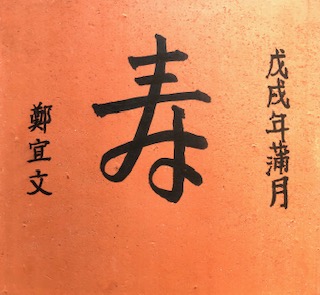 戊戌年蒲月
寿
鄭宜文